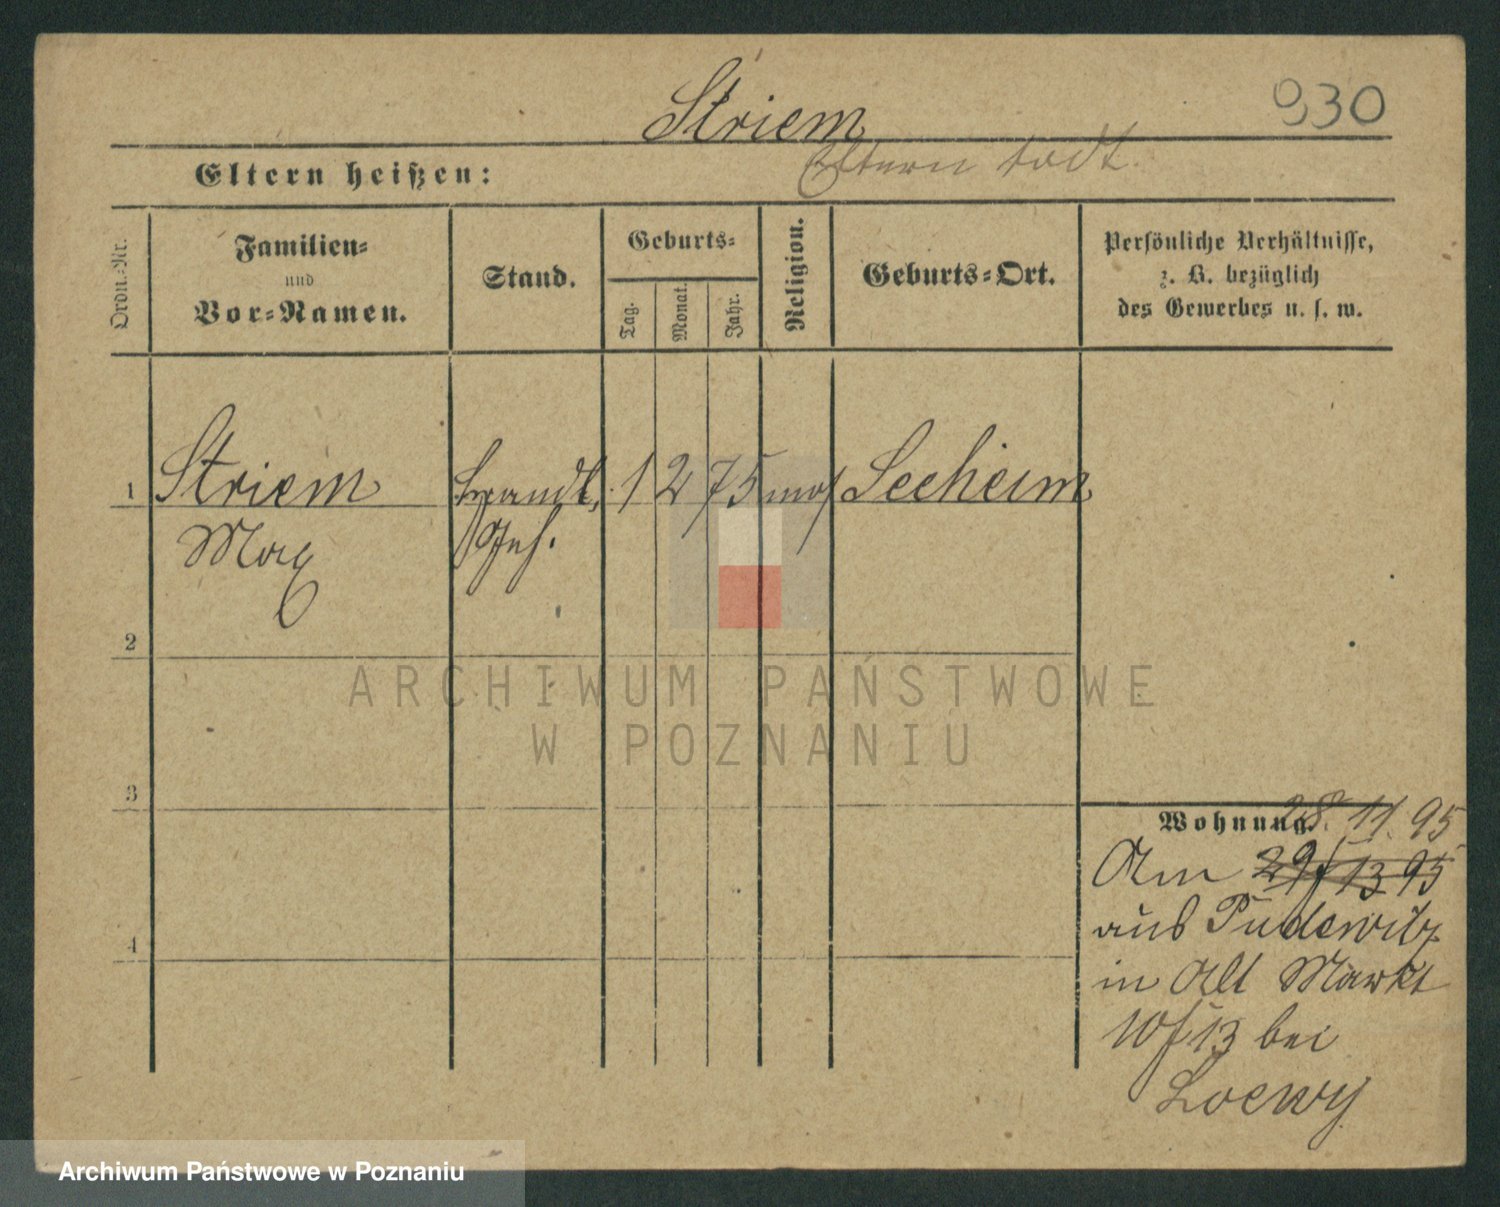 Striem
930
Eltern heißen:
Eltern todt.
Ordn.-Nr.
Familien-
und
Vor-Namen.
Stand.
Geburts-
Tag.
Monat.
Jahr.
Religion.
Geburts-Ort.
Persönliche Verhältnisse,
z. B. bezüglich
des Gewerbes u. s. w.
1 Striem Handl. 1 2 75 mos Seeheim
Max
2
3
4
Wohnung. 28. 11. 95
Am 29/13 95
aus Pudewitz
in Alt Markt
10/13 bei
Loewy
ARCHIWUM PAŃSTWOWE
W POZNANIU
Archiwum Państwowe w Poznaniu